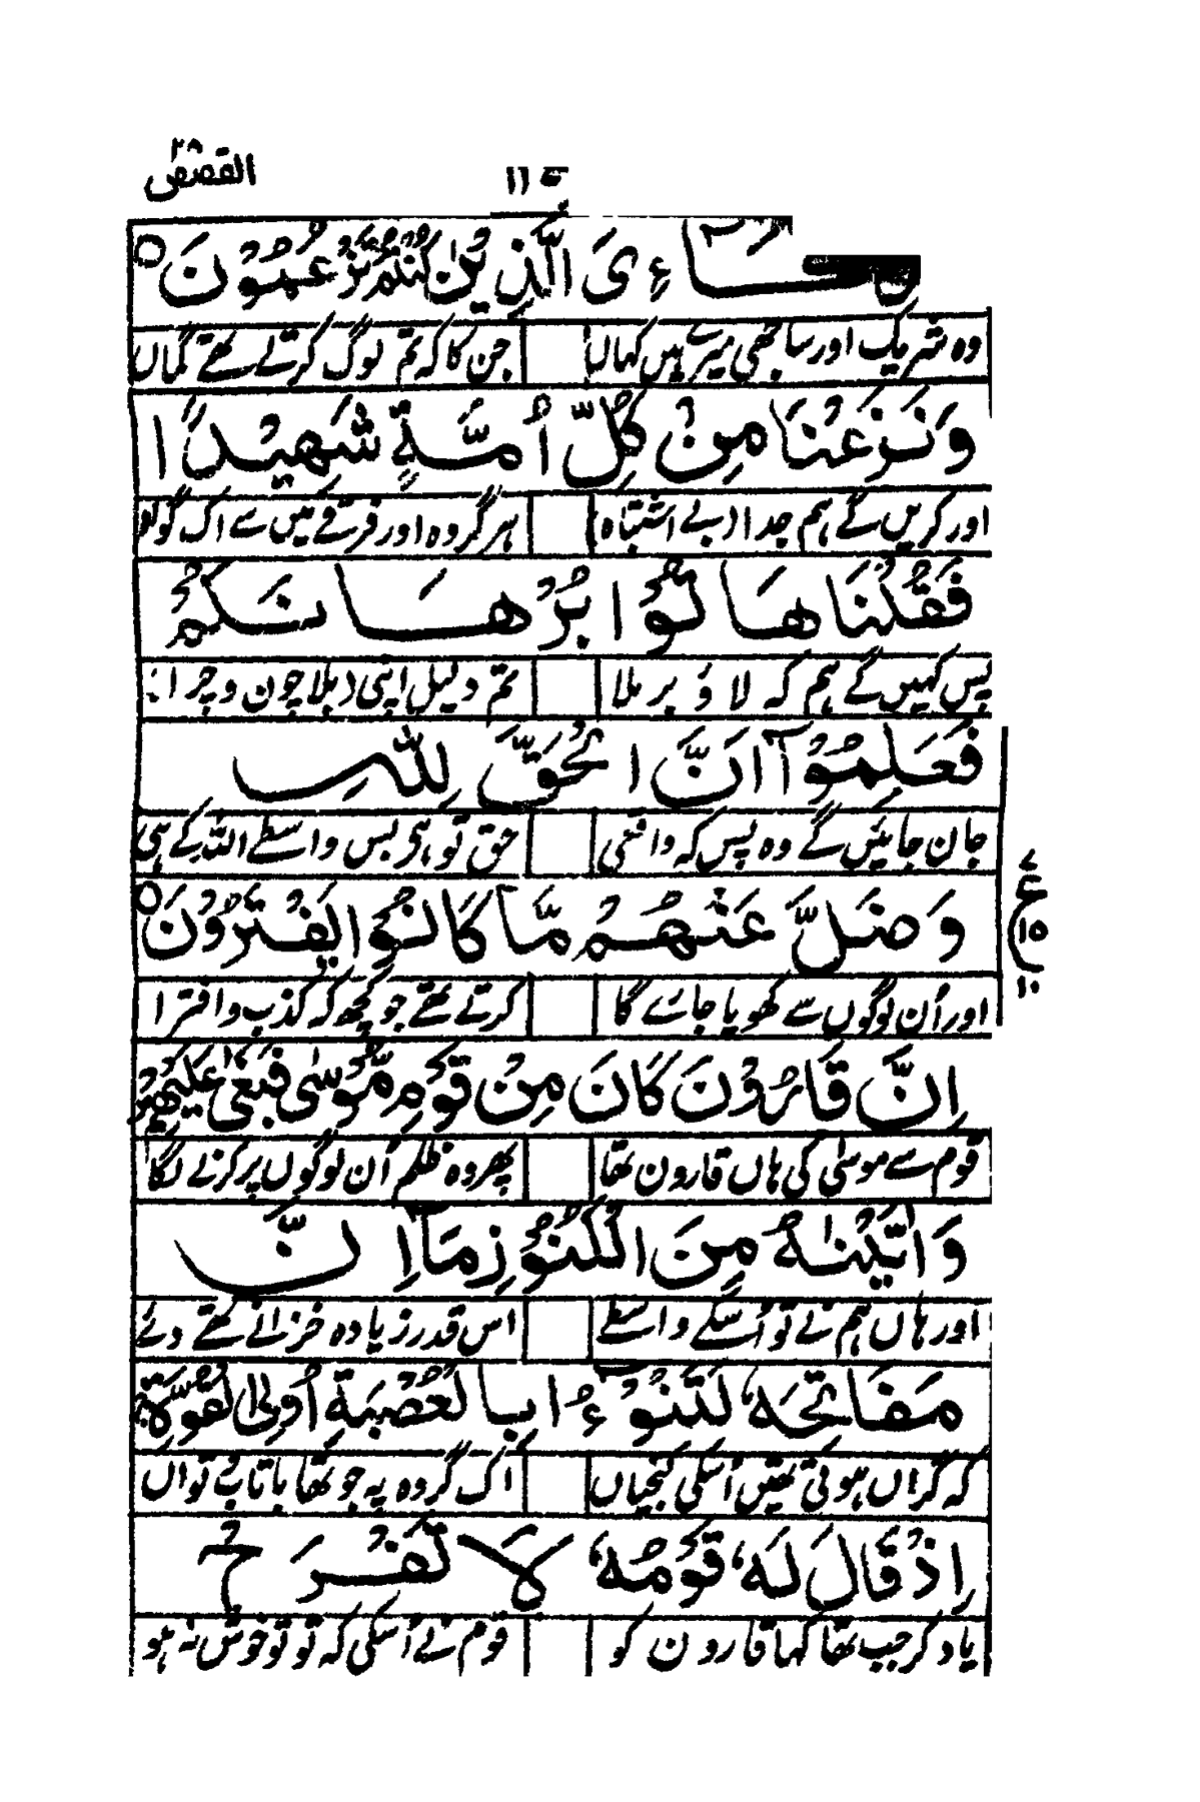 القصص ٢٨
شُرَكَاءِیَ الَّذِیْنَ كُنْتُمْ تَزْعُمُوْنَ ○
وہ شریک اور ساجھی میرے ہیں کہاں جن کا کہ تم لوگ کرتے تھے گماں
وَنَزَعْنَا مِنْ كُلِّ اُمَّةٍ شَهِیْدًا
اور کریں گے ہم جدا بے اشتباہ ہر گروہ اور فرقے میں سے اک گواہ
فَقُلْنَا هَاتُوْا بُرْهَانَكُمْ
پس کہیں گے ہم کہ لاؤ برملا تم دلیل اپنی بلا چون و چرا
فَعَلِمُوْۤا اَنَّ الْحَقَّ لِلّٰهِ
جان جائیں گے وہ پس کہ واقعی حق تو ہی بس واسطے اللہ کے ہی
وَضَلَّ عَنْهُمْ مَّا كَانُوْا یَفْتَرُوْنَ ○
اور اُن لوگوں سے کھویا جائے گا کرتے تھے جو کچھ کہ کذب و افترا
ع
١٥
١٠
اِنَّ قَارُوْنَ كَانَ مِنْ قَوْمِ مُوْسٰی فَبَغٰی عَلَیْهِمْ
قوم سے موسٰی کی ہاں قارون تھا پھر وہ ظلم اُن لوگوں پر کرنے لگا
وَاٰتَیْنٰهُ مِنَ الْكُنُوْزِ مَاۤ اِنَّ
اور ہاں ہم نے تو اُسکے واسطے اس قدر زیادہ خزانے تھے دئے
مَفَاتِحَهٗ لَتَنُوْٓءُ اِبِالْعُصْبَةِ اُولِی الْقُوَّةِ
کہ گراں ہوتی تھیں اُسکی کنجیاں اک گروہ پہ جو تھا با تاب تواں
اِذْ قَالَ لَهٗ قَوْمُهٗ لَا تَفْرَحْ
یاد کر جب تھا کہا قارون کو قوم نے اُسکی کہ تو تو خوش نہ ہو